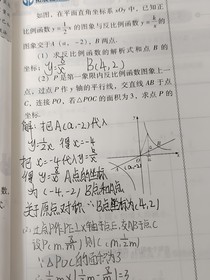 如图，在平面直角坐标系 xOy 中，已知正
比例函数 y=½x 的图象与反比例函数 y=k/x 的
图象交于A(a，-2)，B两点.
(1)求反比例函数的解析式和点 B 的
坐标；y=8/x B(4,2)
(2)P 是第一象限内反比例函数图象上一
点，过点 P 作 y 轴的平行线，交直线 AB 于点
C，连接 PO，若△POC 的面积为 3，求点 P 的
坐标.
解：把A(a,-2)代入
y=½x 得 x=-4
把 x=-4代入 y=k/x
得 y=8/x A点的坐标
为(-4,-2) B点和A点
关于原点对称 ∴B点坐标为(4,2)
(2)过点P作PE⊥x轴于点E,交AB于点C
设P(m,8/m) 则C(m,½m)
∵△POC的面积为3